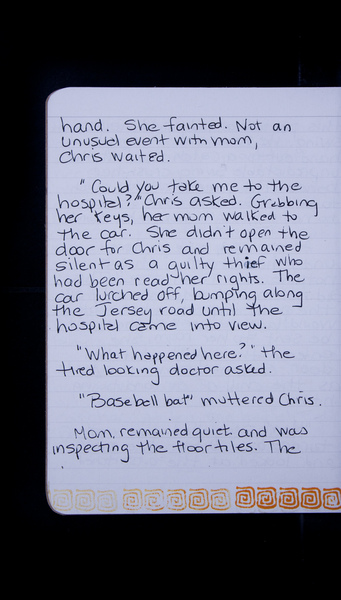 hand. She fainted. Not an
unusuel event with mom,
Chris waited.
"Could you take me to the
hospital?" Chris asked. Grabbing
her keys, her mom walked to
the car. She didn't open the
door for Chris and remained
silent as a guilty thief who
had been read her rights. The
car lurched off, bumping along
the Jersey road until the
hospital came into view.
"What happened here?" the
tired looking doctor asked.
"Baseball bat" muttered Chris.
Mom, remained quiet and was
inspecting the floor tiles. The